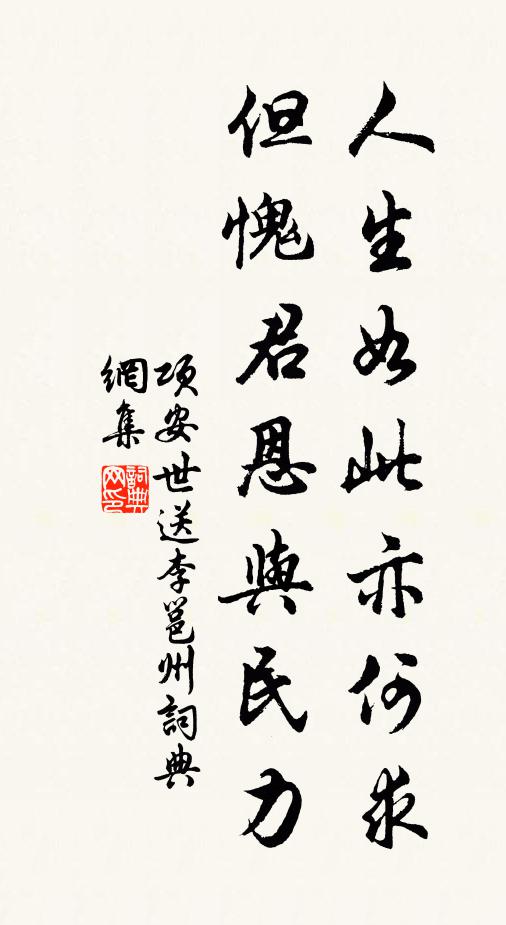 人生如此亦何求
但愧君恩與民力
項安世送李邕州詞典
網集
詞典
网印